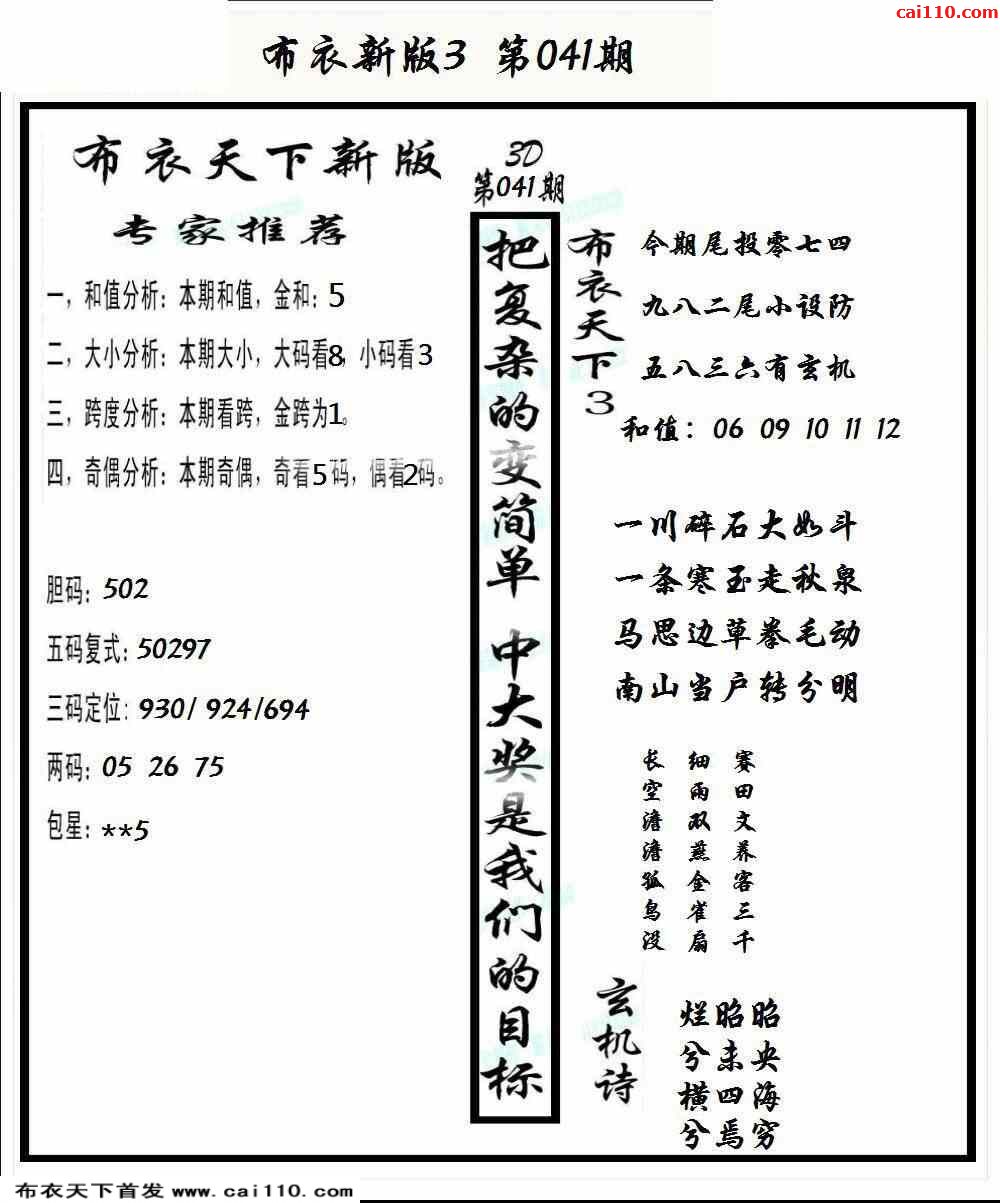 cai110.com
布衣新版3 第041期
布衣天下新版
专家推荐
一，和值分析：本期和值，金和：5
二，大小分析：本期大小，大码看8，小码看3
三，跨度分析：本期看跨，金跨为1。
四，奇偶分析：本期奇偶，奇看5码，偶看2码。
胆码：502
五码复式：50297
三码定位：930/ 924/694
两码：05 26 75
包星：**5
3D
第041期
把复杂的变简单 中大奖是我们的目标
布衣天下3
今期尾投零七四
九八二尾小设防
五八三六有玄机
和值：06 09 10 11 12
一川碎石大如斗
一条寒玉走秋泉
马思边草拳毛动
南山当户转分明
长空澹澹孤鸟没
细雨双燕金雀扇
赛田文养客三千
玄机诗
烂昭昭
兮未央
横四海
兮焉穷
布衣天下首发 www.cai110.com